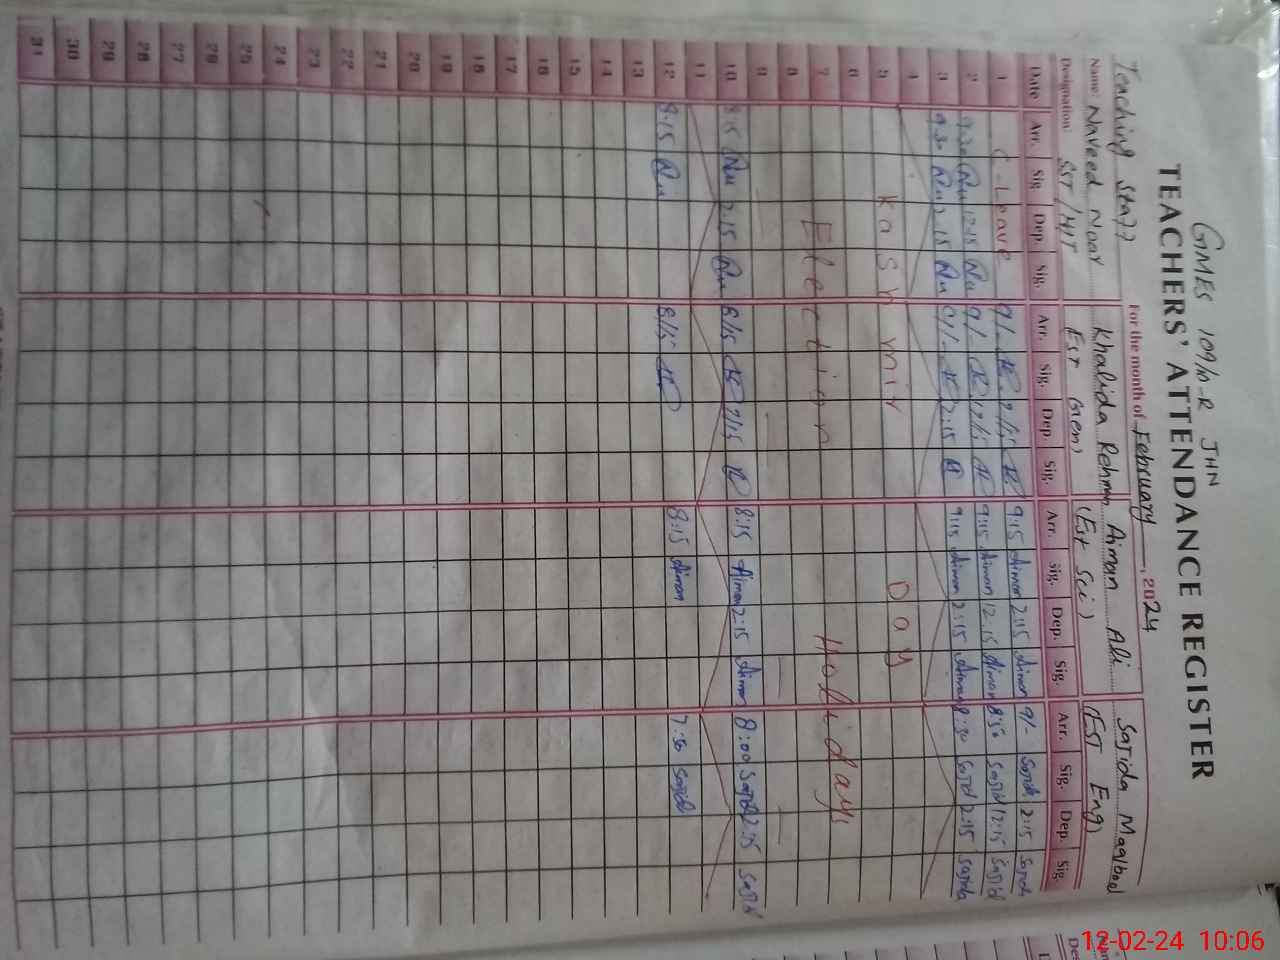 GMES 109/10-R JHN
TEACHERS' ATTENDANCE REGISTER
Teaching Staff For the month of February, 2024
Name: Naveed Noor Khalida Rehman Aiman Ali Sajida Maqbool
Designation: SST/HT EST Gen) (Est Sci) (EST Eng)
Date Arr. Sig Dep. Sig. Arr. Sig. Dep. Sig. Arr. Sig. Dep. Sig. Arr. Sig. Dep. Sig.
1 C-Leave 9/- 2/15 9:15 Aiman 2:15 Aiman 9/- Sajida 2:15 Sajida
2 9:30 12:15 9/- 12/15 9:15 Aiman 12:15 Aiman 8:50 Sajid 12:15 Sajid
3 9:30 2:15 9/- 2:15 9:15 Aiman 2:15 Aiman 8:30 Sajid 2:15 Sajida
4
5 Kashmir Day
6
7 Election Holidays
8
9
10 8:15 2:15 8/15 2/15 8:15 Aiman 2:15 Aiman 8:00 Sajid 2:15 Sajid
11
12 8:15 8/15 8:15 Aiman 7:30 Sajid
13
14
15
16
17
18
19
20
21
22
23
24
25
26
27
28
29
30
31
12-02-24 10:06